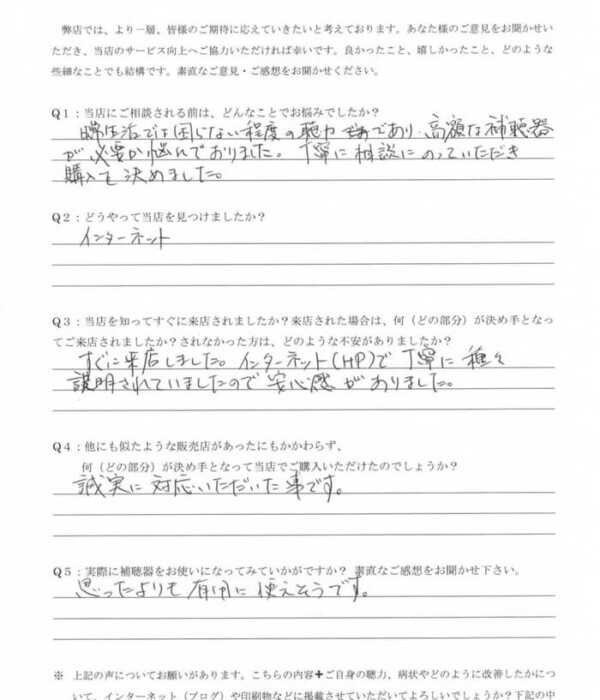 弊店では、より一層、皆様のご期待に応えていきたいと考えております。あなた様のご意見をお聞かせい
ただき、当店のサービス向上へご協力いただければ幸いです。良かったこと、嬉しかったこと、どのような
些細なことでも結構です。素直なご意見・ご感想をお聞かせください。
Q1：当店にご相談される前は、どんなことでお悩みでしたか？
日常生活では困らない程度の聴力であり、高額な補聴器
が必要か悩んでおりました。丁寧に相談にのっていただき
購入を決めました。
Q2：どうやって当店を見つけましたか？
インターネット
Q3：当店を知ってすぐに来店されましたか？来店された場合は、何（どの部分）が決め手となっ
てご来店されましたか？されなかった方は、どのような不安がありましたか？
すぐに来店しました。インターネット(HP)で丁寧に種々
説明されていましたので安心感がありました。
Q4：他にも似たような販売店があったにもかかわらず、
何（どの部分）が決め手となって当店でご購入いただけたのでしょうか？
誠実に対応いただいた事です。
Q5：実際に補聴器をお使いになってみていかがですか？ 素直なご感想をお聞かせ下さい。
思ったよりも有用に使えそうです。
※ 上記の声についてお願いがあります。こちらの内容＋ご自身の聴力、病状やどのように改善したかにつ
いて、インターネット（ブログ）や印刷物などに掲載させていただいてよろしいでしょうか？下記の中